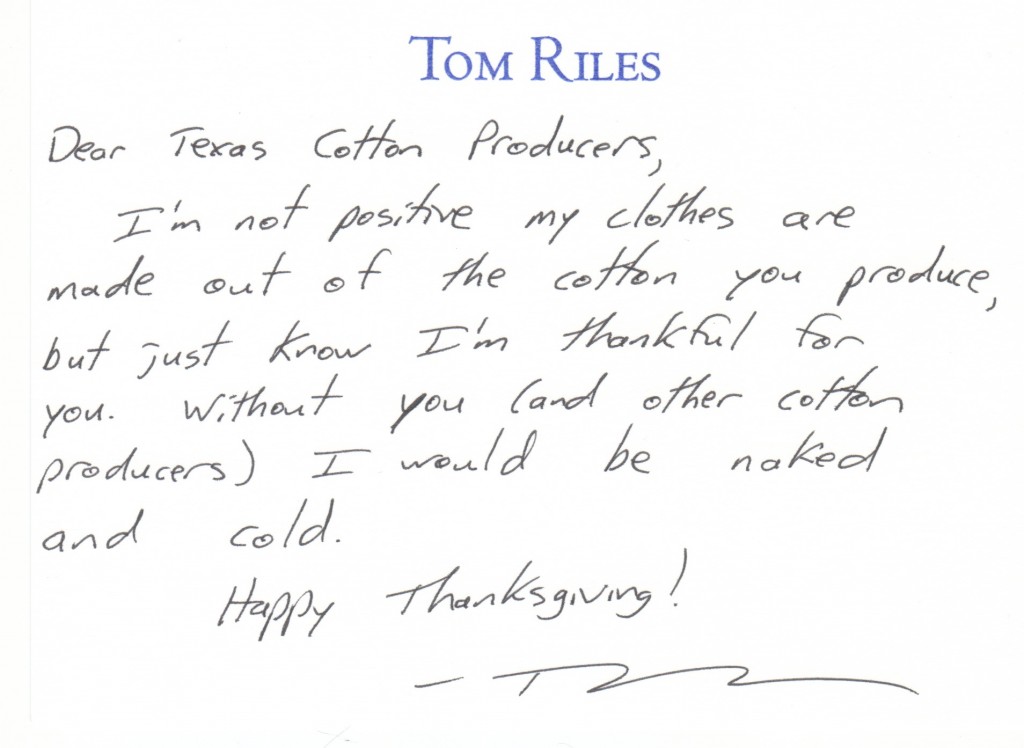 Tom Riles
Dear Texas Cotton Producers,
I'm not positive my clothes are
made out of the cotton you produce,
but just know I'm thankful for
you. Without you (and other cotton
producers) I would be naked
and cold.
Happy Thanksgiving!